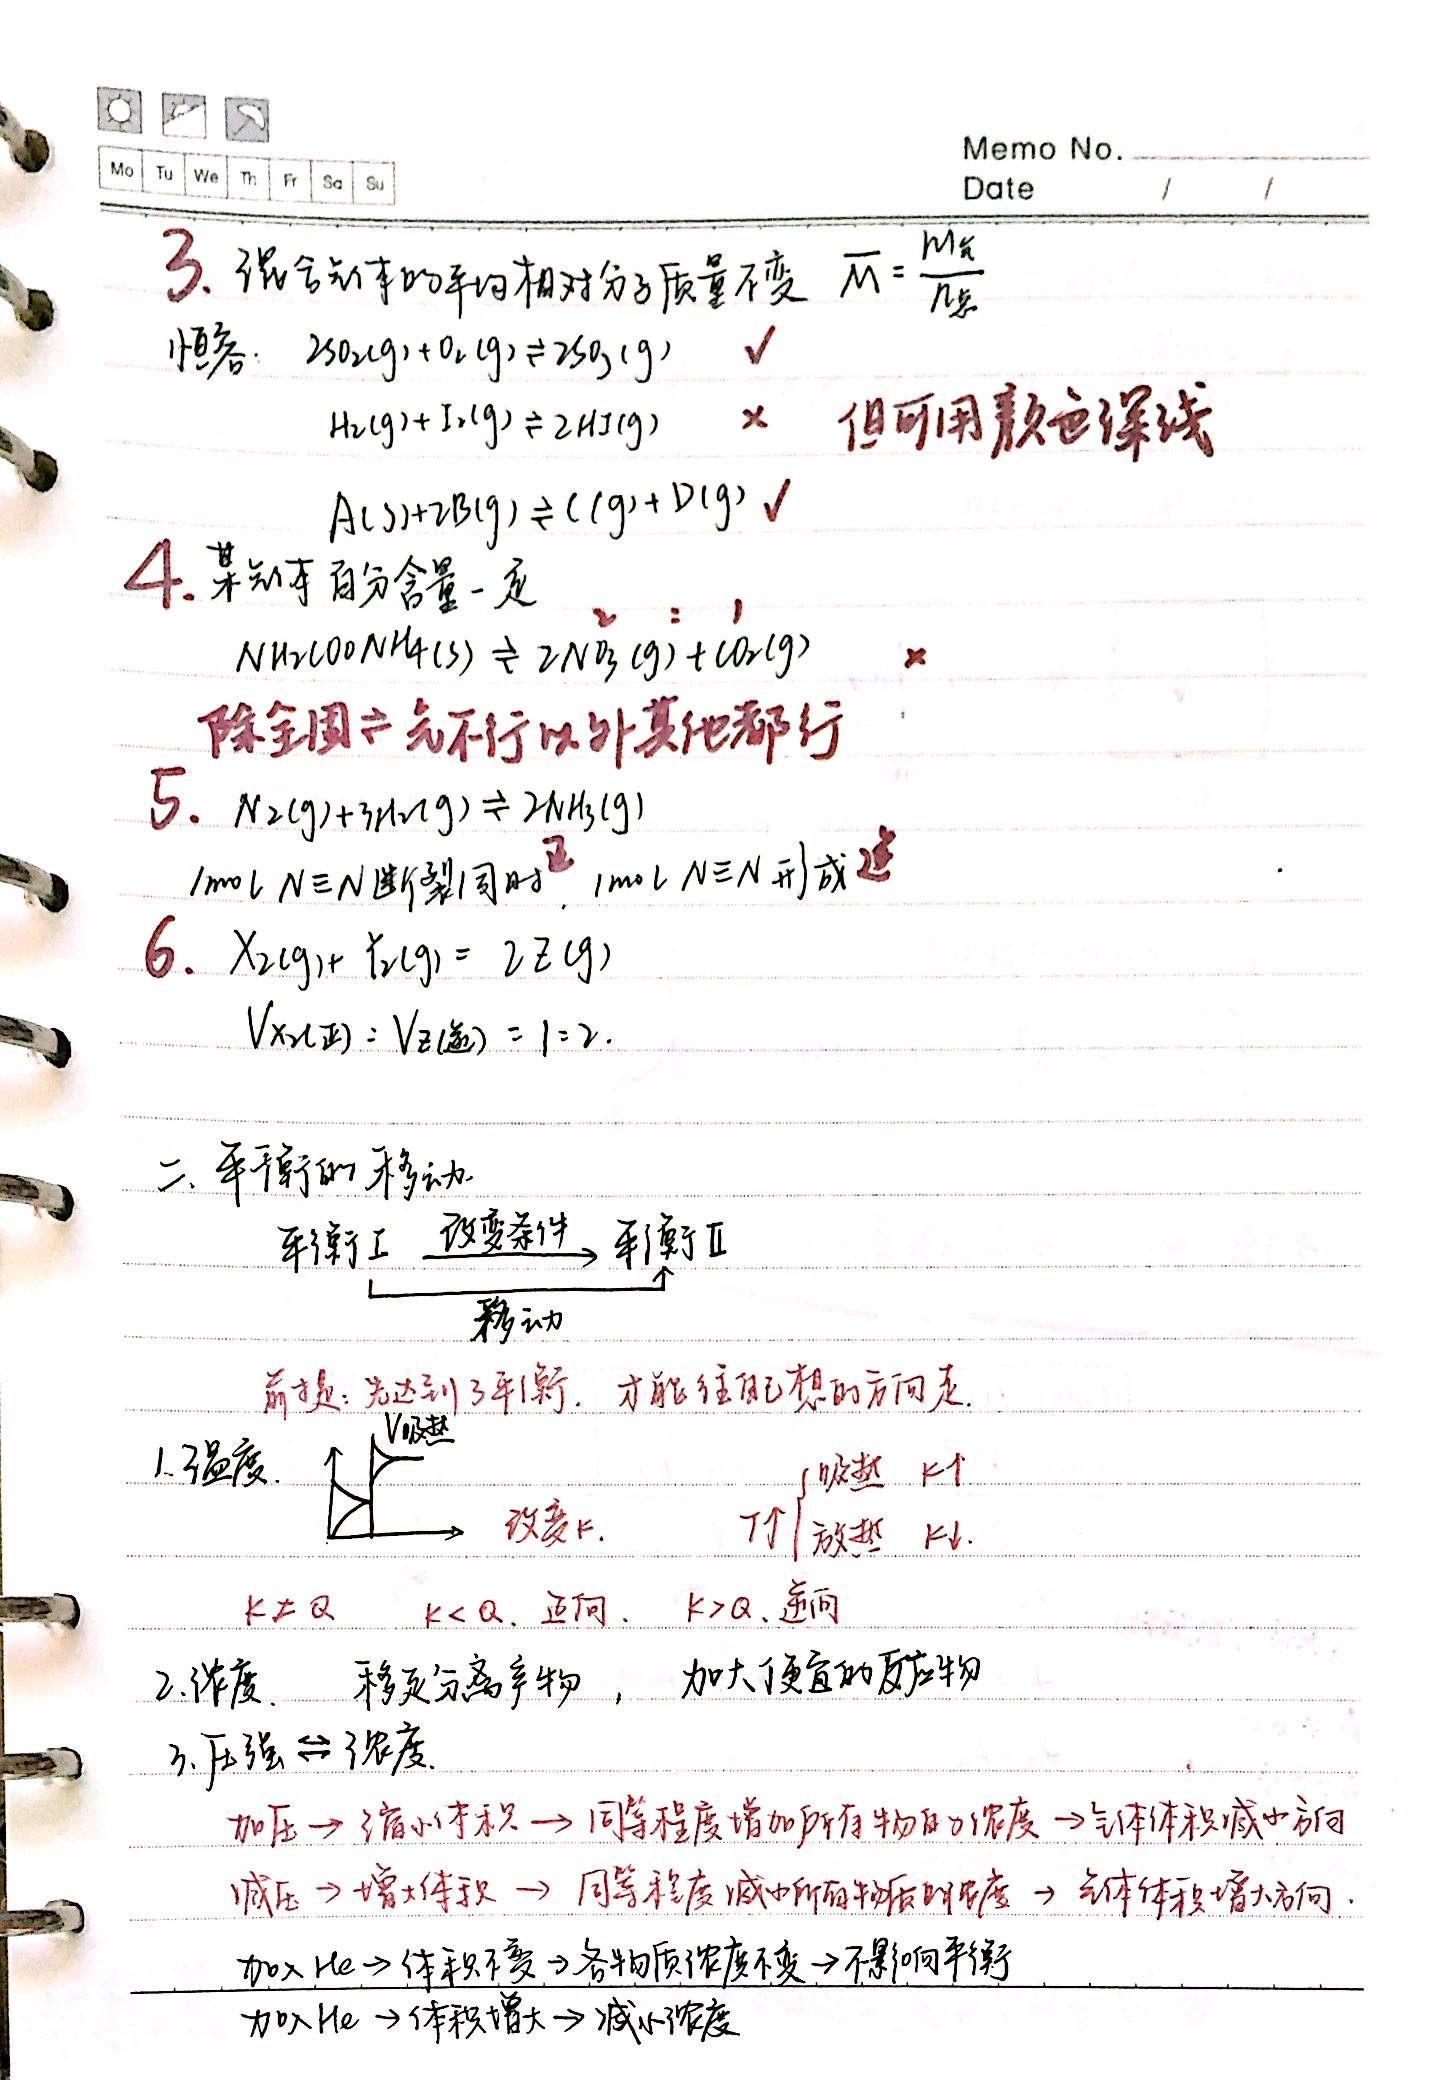 Mo Tu We Th Fr Sa Su
Memo No.
Date / /
3. 混合气体的平均相对分子质量不变 M̄ = m气/n总
恒容. 2SO₂(g)+O₂(g)⇌2SO₃(g) ✓
H₂(g)+I₂(g)⇌2HI(g) × 但可用颜色深浅
A(s)+2B(g)⇌C(g)+D(g) ✓
4. 某气体百分含量一定
2 : 1
NH₂COONH₄(s)⇌2NO₃(g)+CO₂(g) ×
除全固⇌气不行以外其他都行
5. N₂(g)+3H₂(g)⇌2NH₃(g)
1mol N≡N断裂同时正, 1mol N≡N形成逆
6. X₂(g)+Y₂(g)=2Z(g)
Vx₂(正):Vz(逆)=1:2.
二、平衡的移动.
平衡I 改变条件→ 平衡II
移动
前提:先达到了平衡. 才能往自己想的方向走.
V吸热
1.温度. 改变K. T↑{吸热 K↑
放热 K↓.
K≠Q K<Q. 正向. K>Q、逆向
2.浓度. 移走分离产物, 加大便宜的反应物
3.压强⇔浓度.
加压→缩小体积→同等程度增加所有物的浓度→气体体积减小方向
减压→增大体积→同等程度减小所有物质的浓度→气体体积增大方向.
加入He→体积不变→各物质浓度不变→不影响平衡
加入He→体积增大→减小浓度